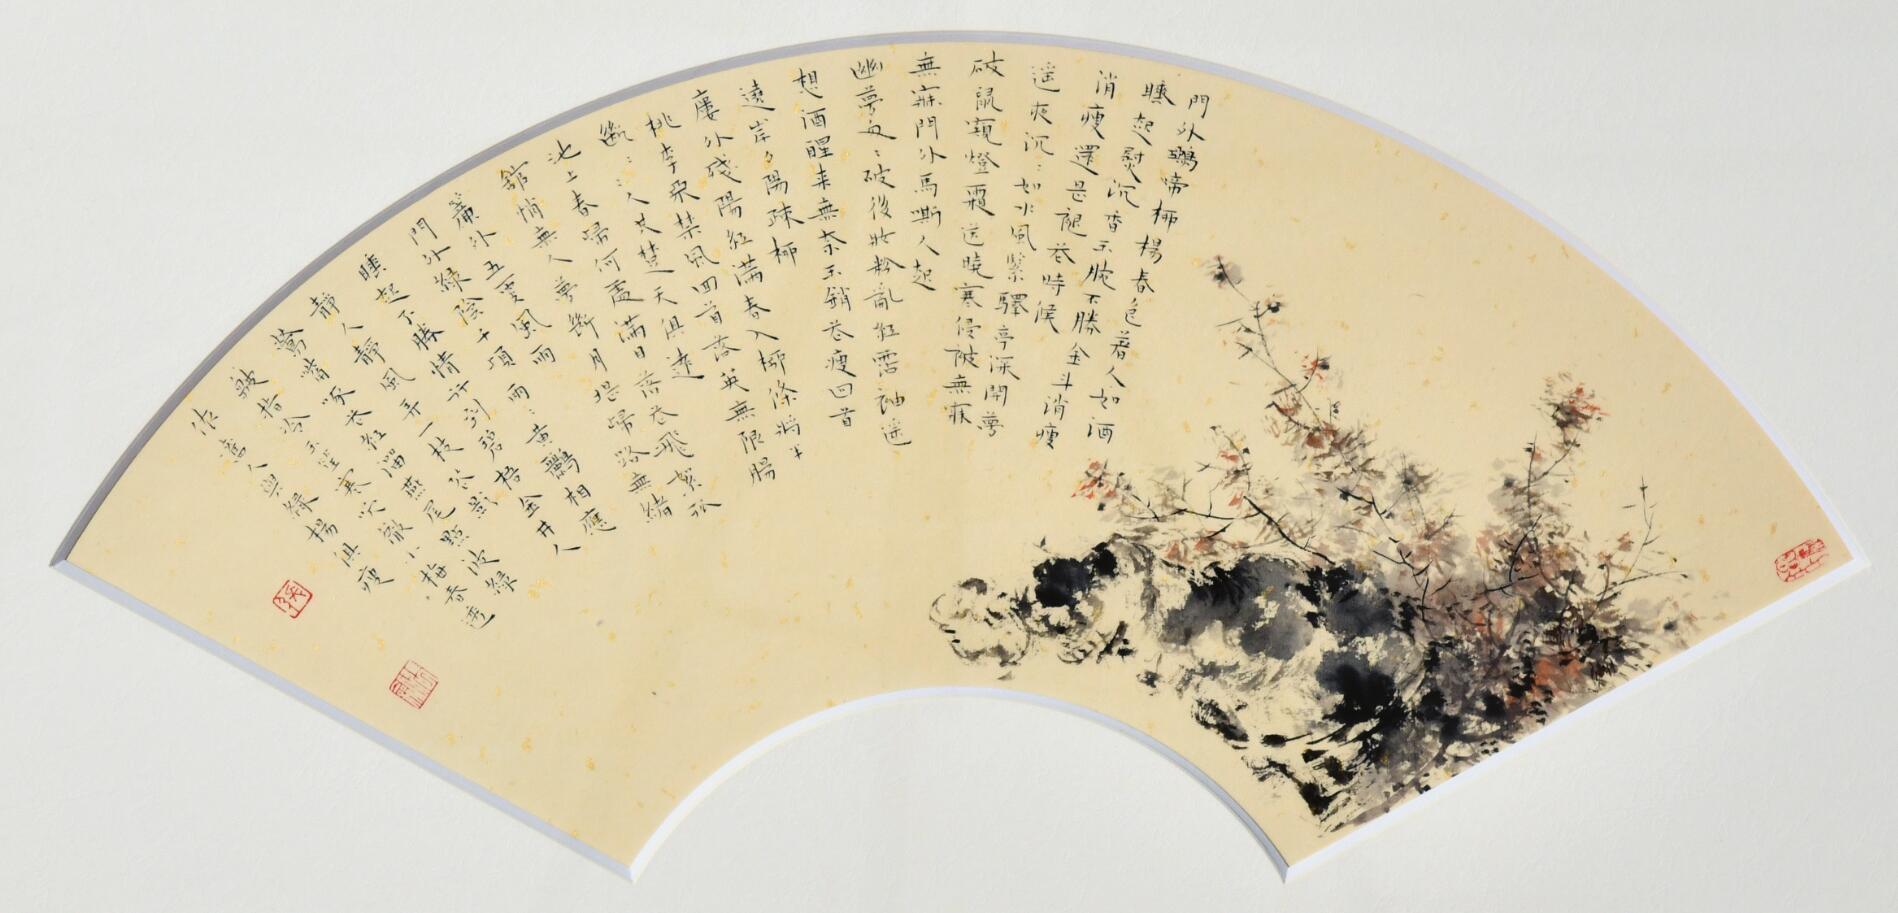 門外鵶啼柳楊春色著人如酒
睡起熨沉香玉腕不勝金斗消瘦
消瘦還是褪花時候
遥夜沉:如水風緊驛亭深閉夢
破鼠窺燈霜送曉寒侵被無寐
無寐門外馬嘶人起
幽夢匆:破後妝粉亂紅霑袖遥
想酒醒来無奈玉銷花瘦回首
遶岸夕陽疎柳
樓外殘陽紅滿春入柳條將半
桃李不禁風回首落英無限腸
斷::人共楚天俱遠
池上春歸何處滿目落花飛絮孤
館悄無人夢斷月堤歸路無緒
簾外五更風雨
門外綠陰千頃兩:黃鸝相應
睡起不勝情行到碧梧金井人
靜人靜風弄一枝花影
鶯嘴啄花紅溜燕尾點波綠
皺指冷玉笙寒吹徹小梅春透
依舊人與綠楊俱瘦